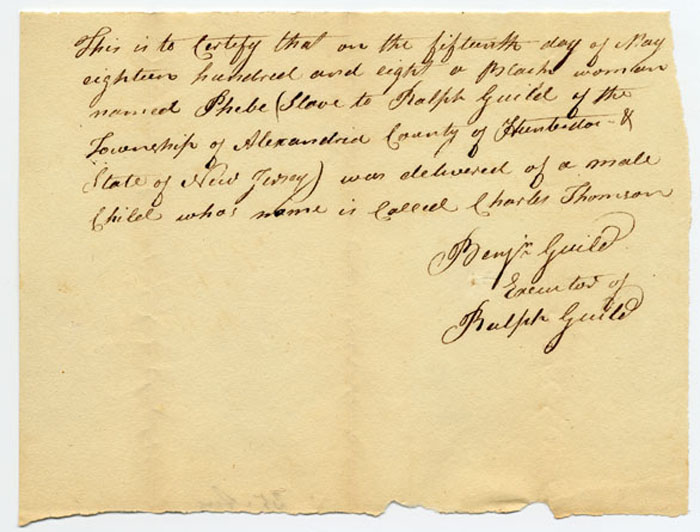 This is to Certify that on the fifteenth day of May
eighteen hundred and eight a Black woman
named Phebe (Slave to Ralph Guild of the
Township of Alexandria County of Hunterdon &
State of New Jersey) was delivered of a male
Child whos name is Called Charles Thomson
Benjn Guild
Executor of
Ralph Guild